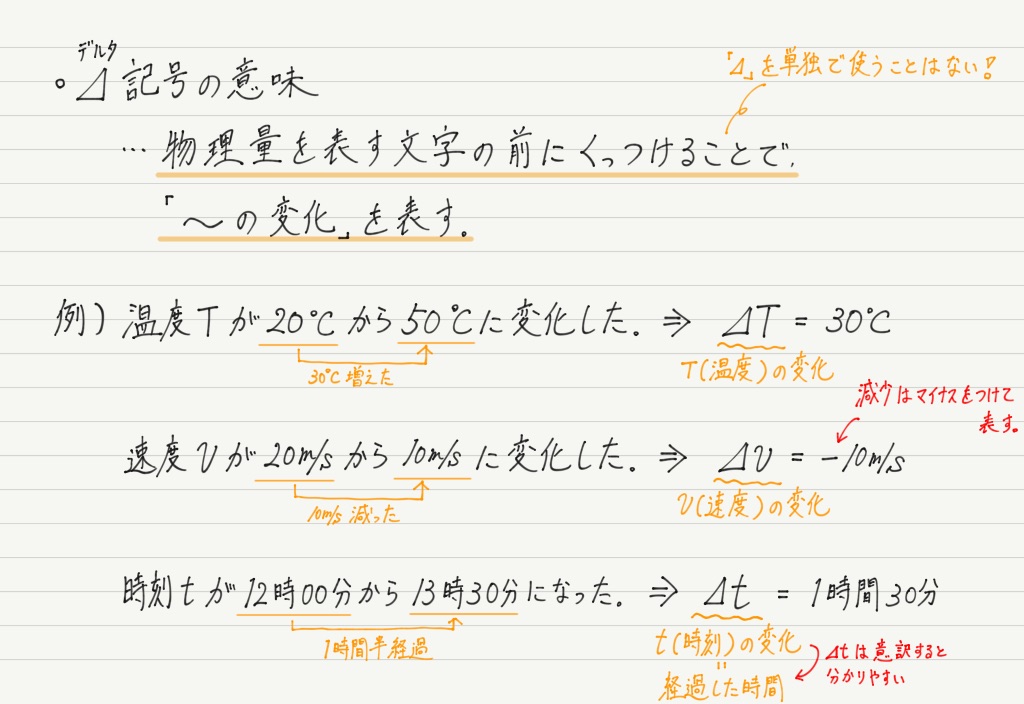 デルタ
○ Δ 記号の意味
「Δ」を単独で使うことはない!
… 物理量を表す文字の前にくっつけることで、
「〜の変化」を表す。
例) 温度Tが20℃から50℃に変化した。⇒ ΔT = 30℃
30℃増えた
T(温度)の変化
減少はマイナスをつけて
表す。
速度vが20m/sから10m/sに変化した。⇒ Δv = −10m/s
10m/s 減った
v(速度)の変化
時刻tが12時00分から13時30分になった。⇒ Δt = 1時間30分
1時間半経過
t(時刻)の変化
Δtは意訳すると
=
分かりやすい
経過した時間